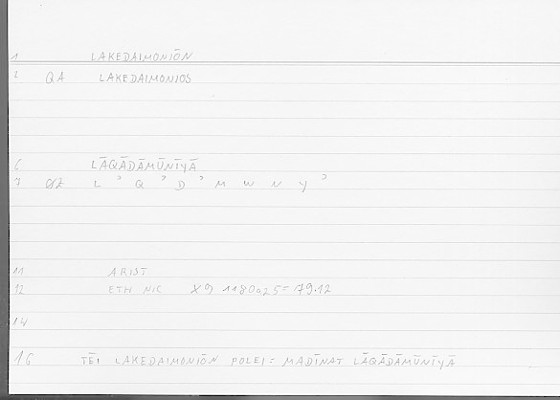 1 LAKEDAIMONIŌN
2 QA LAKEDAIMONIOS
6 LĀQĀDĀMŪNĪYĀ
7 L ʾ Q ʾ D ʾ M W N Y ʾ
11 ARIST
12 ETH NIC X9 1180a25= 79.12
14
16 TĒI LAKEDAIMONIŌN POLEI: MADĪNAT LĀQĀDĀMŪNĪYĀ